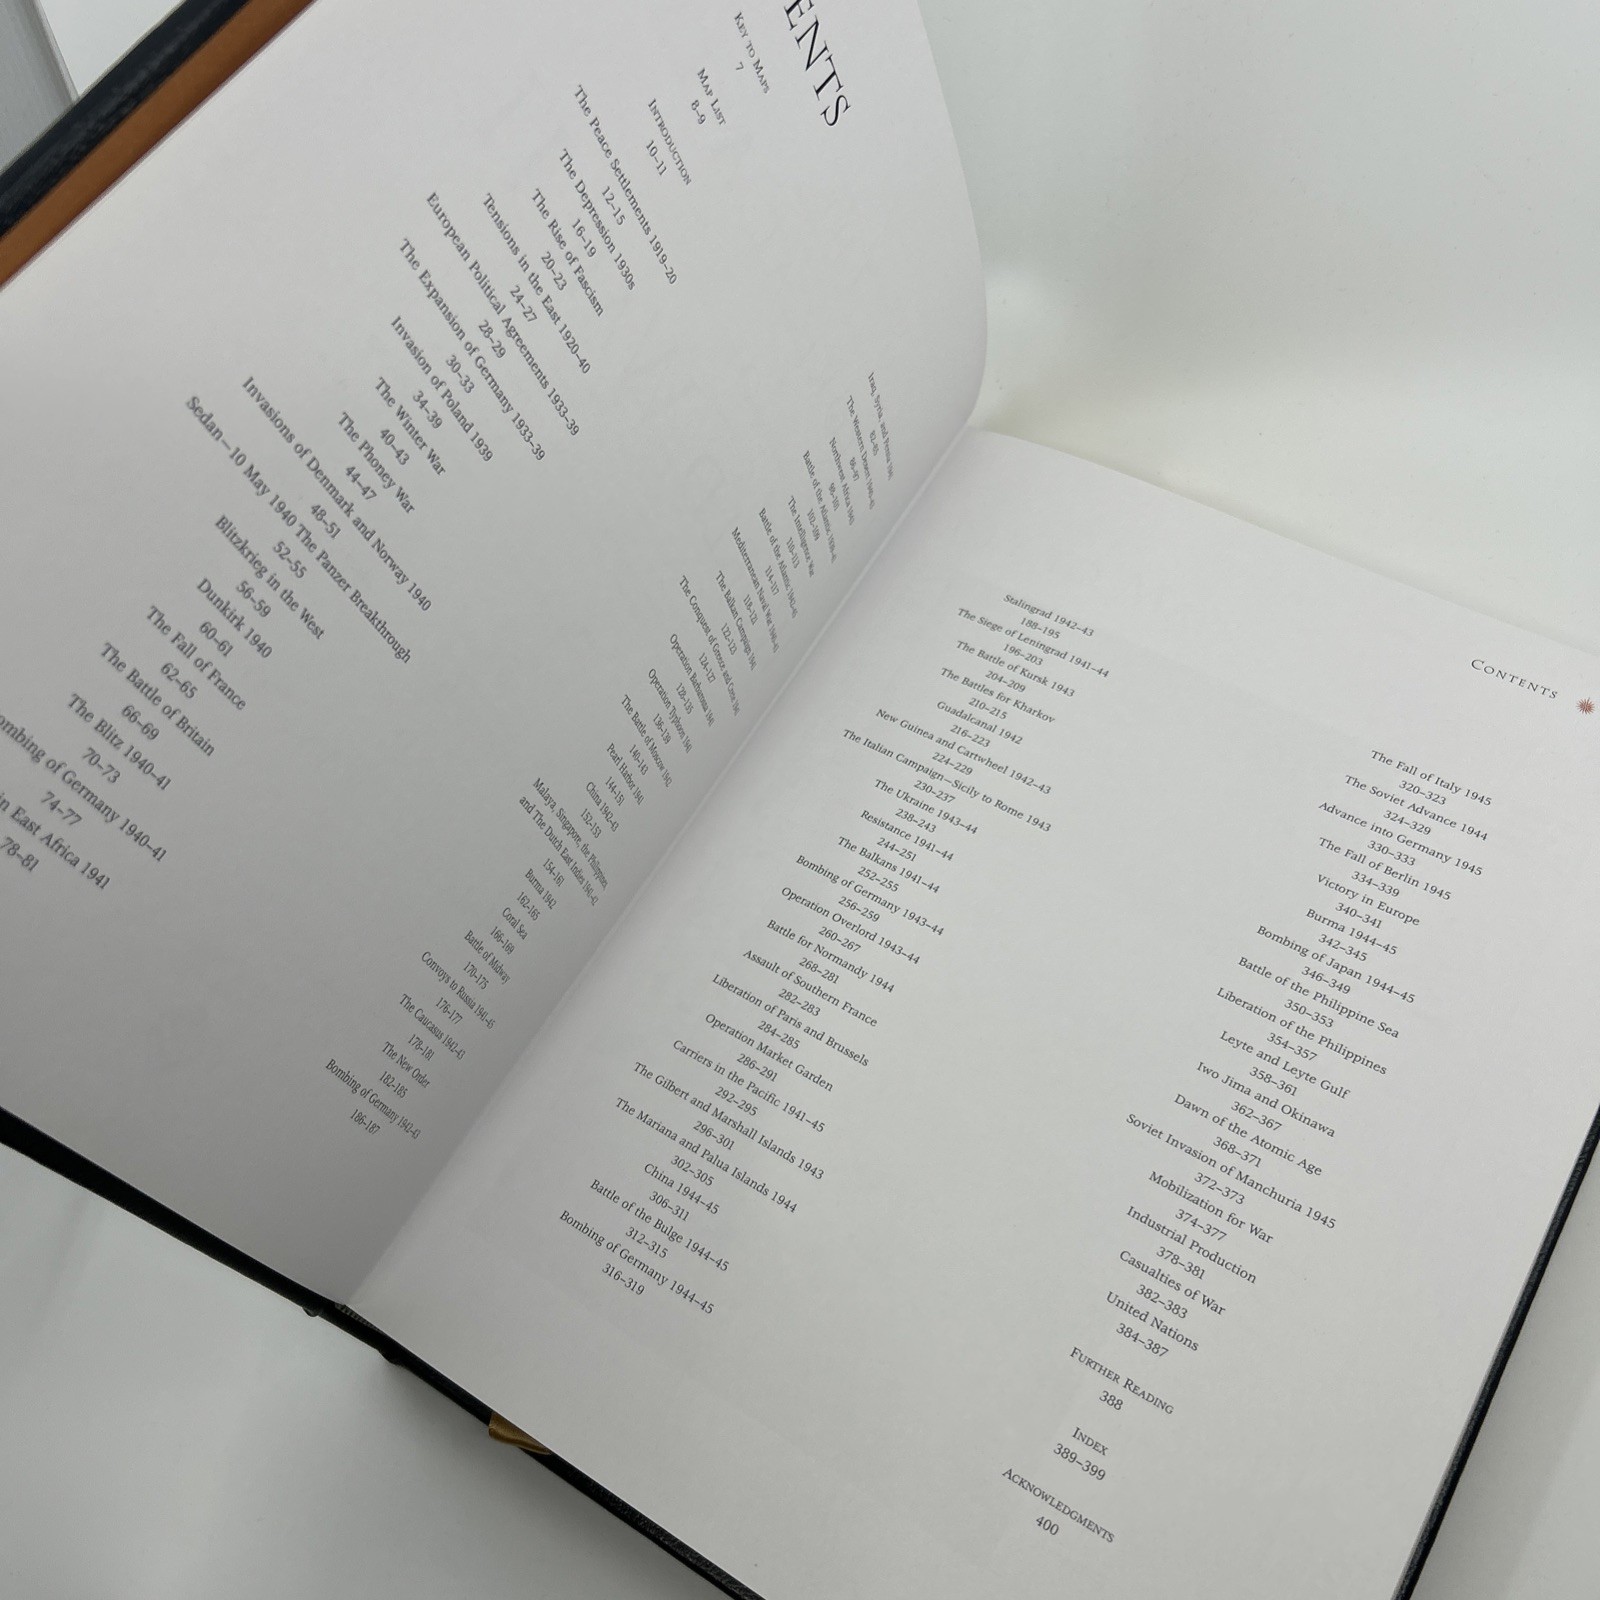 ENTS
KEY TO MAPS
7
MAP LIST
8–9
INTRODUCTION
10–11
The Peace Settlements 1919–20
12–15
The Depression 1930s
16–19
The Rise of Fascism
20–23
Tensions in the East 1920–40
24–27
European Political Agreements 1933–39
28–29
The Expansion of Germany 1933–39
30–33
Invasion of Poland 1939
34–39
The Winter War
40–43
The Phoney War
44–47
Invasions of Denmark and Norway 1940
48–51
Sedan—10 May 1940 The Panzer Breakthrough
52–55
Blitzkrieg in the West
56–59
Dunkirk 1940
60–61
The Fall of France
62–65
The Battle of Britain
66–69
The Blitz 1940–41
70–73
ombing of Germany 1940–41
74–77
in East Africa 1941
78–81
Iraq, Syria, and Persia 1941
82–85
The Western Desert 1940–43
86–97
Northwest Africa 1943
98–101
Battle of the Atlantic
102–109
The Intelligence War
110–113
Battle of the Atlantic
114–117
Mediterranean Naval War
118–121
The Balkan Campaign 1941
122–123
The Conquest of Greece and Crete 1941
124–127
Operation Barbarossa 1941
128–135
Operation Typhoon 1941
136–139
The Battle of Moscow 1942
140–143
Pearl Harbor 1941
144–151
China 1942–43
152–153
Malaya, Singapore, the Philippines,
and The Dutch East Indies 1941–42
154–161
Burma 1942
162–165
Coral Sea
166–169
Battle of Midway
170–175
Convoys to Russia 1941–45
176–177
The Caucasus 1942–43
178–181
The New Order
182–185
Bombing of Germany 1942–43
186–187
CONTENTS
Stalingrad 1942–43
188–195
The Siege of Leningrad 1941–44
196–203
The Battle of Kursk 1943
204–209
The Battles for Kharkov
210–215
Guadalcanal 1942
216–223
New Guinea and Cartwheel 1942–43
224–229
The Italian Campaign—Sicily to Rome 1943
230–237
The Ukraine 1943–44
238–243
Resistance 1941–44
244–251
The Balkans 1941–44
252–255
Bombing of Germany 1943–44
256–259
Operation Overlord 1943–44
260–267
Battle for Normandy 1944
268–281
Assault of Southern France
282–283
Liberation of Paris and Brussels
284–285
Operation Market Garden
286–291
Carriers in the Pacific 1941–45
292–295
The Gilbert and Marshall Islands 1943
296–301
The Mariana and Palua Islands 1944
302–305
China 1944–45
306–311
Battle of the Bulge 1944–45
312–315
Bombing of Germany 1944–45
316–319
The Fall of Italy 1945
320–323
The Soviet Advance 1944
324–329
Advance into Germany 1945
330–333
The Fall of Berlin 1945
334–339
Victory in Europe
340–341
Burma 1944–45
342–345
Bombing of Japan 1944–45
346–349
Battle of the Philippine Sea
350–353
Liberation of the Philippines
354–357
Leyte and Leyte Gulf
358–361
Iwo Jima and Okinawa
362–367
Dawn of the Atomic Age
368–371
Soviet Invasion of Manchuria 1945
372–373
Mobilization for War
374–377
Industrial Production
378–381
Casualties of War
382–383
United Nations
384–387
FURTHER READING
388
INDEX
389–399
ACKNOWLEDGMENTS
400